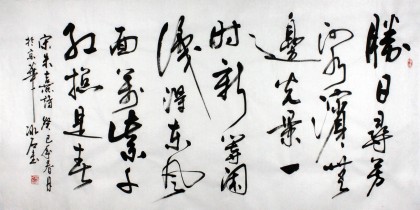 勝日尋芳
泗水濱無
邊光景一
時新等閒
識得東風
面萬紫千
紅總是春
宋朱熹詩癸巳年春月
於京華石書